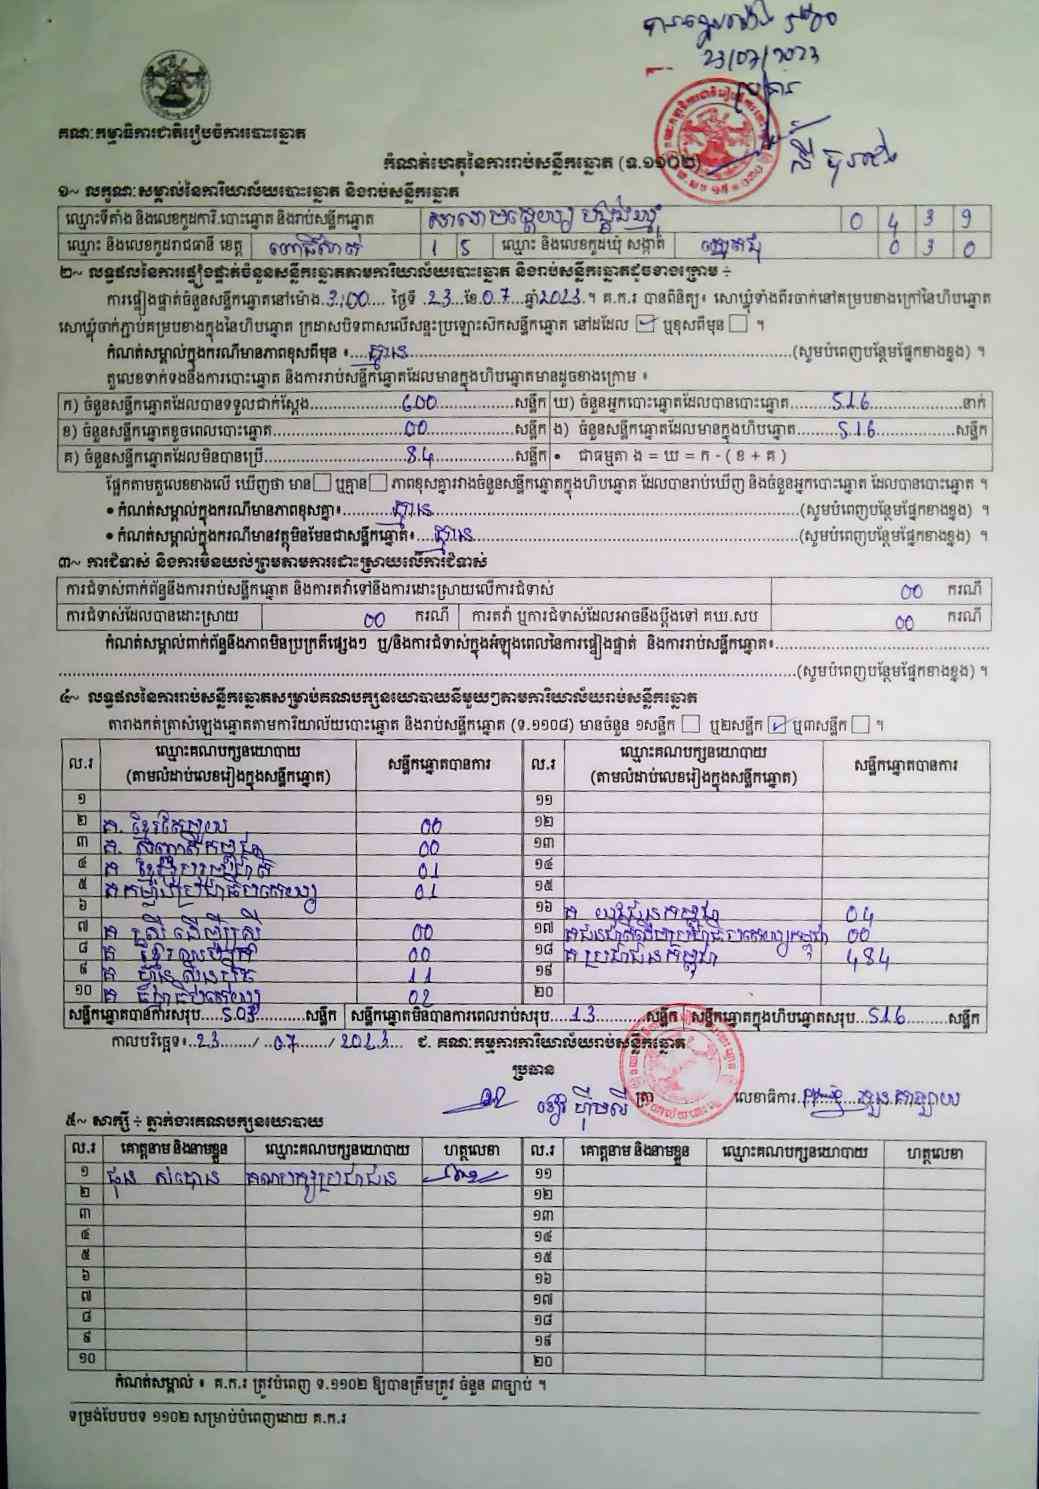 23/07/2023
ប្រធាន
គណៈកម្មាធិការជាតិរៀបចំការបោះឆ្នោត
កំណត់ហេតុនៃការរាប់សន្លឹកឆ្នោត (ទ.១១០២)
១~ លក្ខណៈសម្គាល់នៃការិយាល័យបោះឆ្នោត និងរាប់សន្លឹកឆ្នោត
ឈ្មោះទីតាំង និងលេខកូដការិ.បោះឆ្នោត និងរាប់សន្លឹកឆ្នោត 0 4 3 9
ឈ្មោះ និងលេខកូដរាជធានី ខេត្ត ពោធិ៍សាត់ 1 5 ឈ្មោះ និងលេខកូដឃុំ សង្កាត់ 0 3 0
២~ លទ្ធផលនៃការផ្ទៀងផ្ទាត់ចំនួនសន្លឹកឆ្នោតតាមការិយាល័យបោះឆ្នោត និងរាប់សន្លឹកឆ្នោតដូចខាងក្រោម ÷
ការផ្ទៀងផ្ទាត់ចំនួនសន្លឹកឆ្នោតនៅម៉ោង.3:00.... ថ្ងៃទី .23..ខែ.07...ឆ្នាំ2023.។ គ.ក.រ បានពិនិត្យ៖ សោឃ្លុំទាំងពីរចាក់នៅគម្របខាងក្រៅនៃហិបឆ្នោត
សោឃ្លុំចាក់ភ្ជាប់គម្របខាងក្នុងនៃហិបឆ្នោត ក្រដាសបិទពាសលើសន្ទះប្រឡោះសិកសន្លឹកឆ្នោត នៅដដែល ☑ ឬខុសពីមុន ☐ ។
កំណត់សម្គាល់ក្នុងករណីមានភាពខុសពីមុន ៖....គ្មាន....(សូមបំពេញបន្ថែមផ្នែកខាងខ្នង) ។
តួលេខទាក់ទងនឹងការបោះឆ្នោត និងការរាប់សន្លឹកឆ្នោតដែលមានក្នុងហិបឆ្នោតមានដូចខាងក្រោម ៖
ក) ចំនួនសន្លឹកឆ្នោតដែលបានទទួលជាក់ស្ដែង....600....សន្លឹក ឃ) ចំនួនអ្នកបោះឆ្នោតដែលបានបោះឆ្នោត....516....នាក់
ខ) ចំនួនសន្លឹកឆ្នោតខូចពេលបោះឆ្នោត....00....សន្លឹក ង) ចំនួនសន្លឹកឆ្នោតដែលមានក្នុងហិបឆ្នោត....516....សន្លឹក
គ) ចំនួនសន្លឹកឆ្នោតដែលមិនបានប្រើ....84....សន្លឹក • ជាធម្មតា ង = ឃ = ក - ( ខ + គ )
ផ្អែកតាមតួលេខខាងលើ ឃើញថា មាន ☐ ឬគ្មាន ☐ ភាពខុសគ្នារវាងចំនួនសន្លឹកឆ្នោតក្នុងហិបឆ្នោត ដែលបានរាប់ឃើញ និងចំនួនអ្នកបោះឆ្នោត ដែលបានបោះឆ្នោត ។
• កំណត់សម្គាល់ក្នុងករណីមានភាពខុសគ្នា៖....គ្មាន....(សូមបំពេញបន្ថែមផ្នែកខាងខ្នង) ។
• កំណត់សម្គាល់ក្នុងករណីមានវត្ថុមិនមែនជាសន្លឹកឆ្នោត៖....គ្មាន....(សូមបំពេញបន្ថែមផ្នែកខាងខ្នង) ។
៣~ ការជំទាស់ និងការមិនយល់ព្រមតាមការដោះស្រាយលើការជំទាស់
ការជំទាស់ពាក់ព័ន្ធនឹងការរាប់សន្លឹកឆ្នោត និងការតវ៉ាទៅនឹងការដោះស្រាយលើការជំទាស់ 00 ករណី
ការជំទាស់ដែលបានដោះស្រាយ 00 ករណី ការតវ៉ា ឬការជំទាស់ដែលអាចនឹងប្ដឹងទៅ គឃ.សប 00 ករណី
កំណត់សម្គាល់ពាក់ព័ន្ធនឹងភាពមិនប្រក្រតីផ្សេងៗ ឬ/និងការជំទាស់ក្នុងអំឡុងពេលនៃការផ្ទៀងផ្ទាត់ និងការរាប់សន្លឹកឆ្នោត៖....
....(សូមបំពេញបន្ថែមផ្នែកខាងខ្នង) ។
៤~ លទ្ធផលនៃការរាប់សន្លឹកឆ្នោតសម្រាប់គណបក្សនយោបាយនីមួយៗតាមការិយាល័យរាប់សន្លឹកឆ្នោត
តារាងកត់ត្រាសំឡេងឆ្នោតតាមការិយាល័យបោះឆ្នោត និងរាប់សន្លឹកឆ្នោត (ទ.១១០៨) មានចំនួន ១សន្លឹក ☐ ឬ២សន្លឹក ☑ ឬ៣សន្លឹក ☐ ។
ល.រ ឈ្មោះគណបក្សនយោបាយ (តាមលំដាប់លេខរៀងក្នុងសន្លឹកឆ្នោត) សន្លឹកឆ្នោតបានការ ល.រ ឈ្មោះគណបក្សនយោបាយ (តាមលំដាប់លេខរៀងក្នុងសន្លឹកឆ្នោត) សន្លឹកឆ្នោតបានការ
១ ១១
២ គ. ខ្មែរតែមួយ 00 ១២
៣ គ. សញ្ជាតិកម្ពុជា 00 ១៣
៤ គ ខ្មែររួបរួមជាតិ 01 ១៤
៥ គ កម្លាំងប្រជាធិបតេយ្យ 01 ១៥
៦ ១៦ គ យុវជនកម្ពុជា 04
៧ គ ស្ត្រីដើម្បីស្ត្រី 00 ១៧ គ ជនជាតិដើមប្រជាធិបតេយ្យកម្ពុជា 00
៨ គ 00 ១៨ គ ប្រជាជនកម្ពុជា 484
៩ គ ហ៊្វុនស៊ិនប៉ិច 11 ១៩
១០ គ ធិបតេយ្យ 02 ២០
សន្លឹកឆ្នោតបានការសរុប....503....សន្លឹក សន្លឹកឆ្នោតមិនបានការពេលរាប់សរុប....13....សន្លឹក សន្លឹកឆ្នោតក្នុងហិបឆ្នោតសរុប....516....សន្លឹក
កាលបរិច្ឆេទ៖..23....../ ..07....../ 2023.... ជ. គណៈកម្មការការិយាល័យរាប់សន្លឹកឆ្នោត
ប្រធាន
ត្រា លេខាធិការ
៥~ សាក្សី ÷ ភ្នាក់ងារគណបក្សនយោបាយ
ល.រ គោត្តនាម និងនាមខ្លួន ឈ្មោះគណបក្សនយោបាយ ហត្ថលេខា ល.រ គោត្តនាម និងនាមខ្លួន ឈ្មោះគណបក្សនយោបាយ ហត្ថលេខា
១ គណបក្សប្រជាជន ១១
២ ១២
៣ ១៣
៤ ១៤
៥ ១៥
៦ ១៦
៧ ១៧
៨ ១៨
៩ ១៩
១០ ២០
កំណត់សម្គាល់ ៖ គ.ក.រ ត្រូវបំពេញ ទ.១១០២ ឱ្យបានត្រឹមត្រូវ ចំនួន ៣ច្បាប់ ។
ទម្រង់បែបបទ ១១០២ សម្រាប់បំពេញដោយ គ.ក.រ